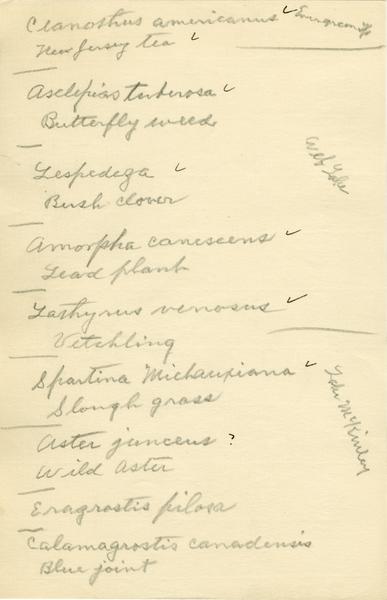 Ceanothus americanus ✓ Evergreen
New Jersey tea ✓
Asclepias tuberosa ✓
Butterfly weed
Lespedeza ✓
Bush clover
Web Lake
Amorpha canescens ✓
Lead plant
Lathyrus venosus ✓
Vetchling
Spartina Michauxiana ✓
Slough grass
Lake McKinley
Aster junceus ?
Wild Aster
Eragrostis pilosa
Calamagrostis canadensis
Blue joint